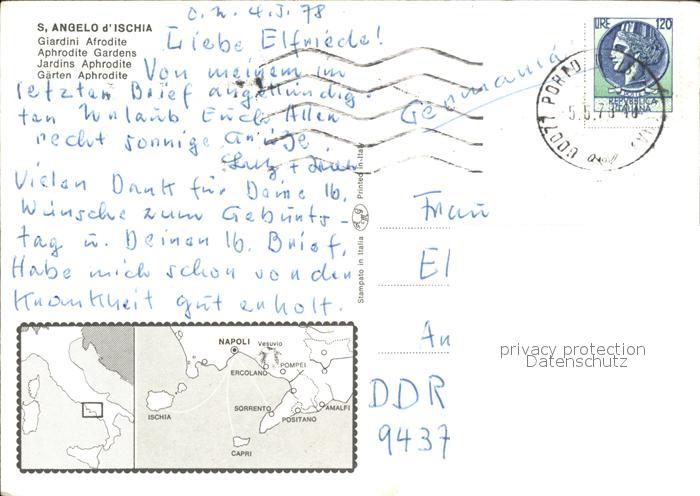 S. ANGELO d'ISCHIA
Giardini Afrodite
Aphrodite Gardens
Jardins Aphrodite
Gärten Aphrodite
O. M. 4.5.78
Liebe Elfriede!
Von meinem im
letzten Brief angekündig-
ten Urlaub Euch Allen
recht sonnige Grüße.
Vielen Dank für Deine lb.
Wünsche zum Geburts-
tag u. Deinen lb. Brief.
Habe mich schon von der
Krankheit gut erholt.
Germania
LIRE 120
REPUBBLICA
ITALIANA
80077 PORTO
5.5.78
Printed in Italy
Stampato in Italia
Frau
El
An
privacy protection
Datenschutz
DDR
9437
NAPOLI
Vesuvio
ERCOLANO
POMPEI
ISCHIA
SORRENTO
AMALFI
POSITANO
CAPRI